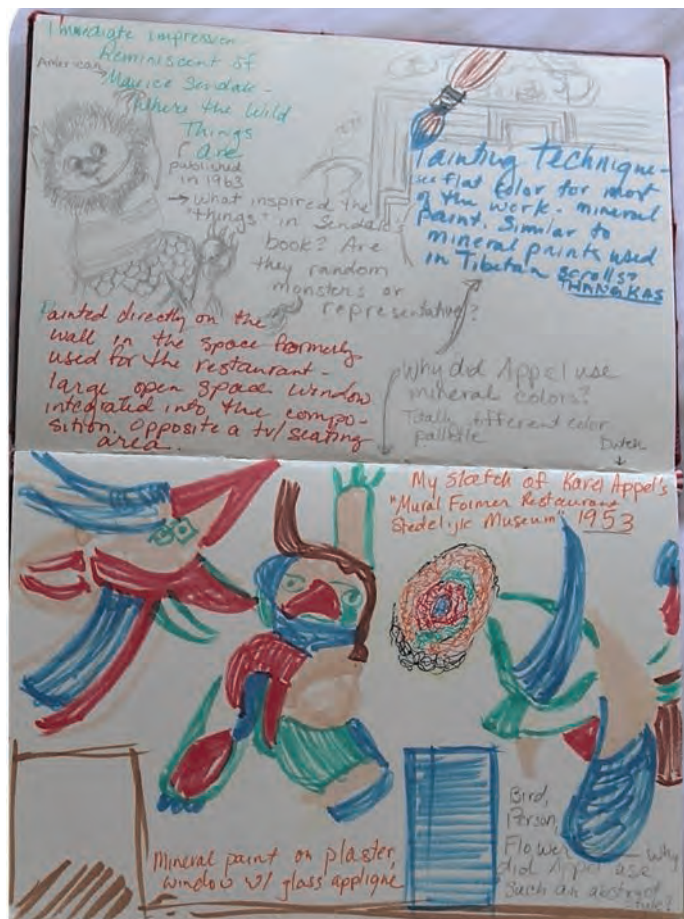 Immediate impression
Reminiscent of
American
Maurice Sendak -
Where the Wild
Things
Are
published
in 1963
→ What inspired the
"things" in Sendak's
book? Are
they random
monsters or
representative?
Painting Technique -
see flat color for most
of the work - mineral
paint. Similar to
mineral paints used
in Tibetan scrolls?
THANGKAS
Painted directly on the
wall in the space formerly
used for the restaurant -
large open space. Window
integrated into the compo-
sition. Opposite a tv/seating
area.
Why did Appel use
mineral colors?
Totally different color
pallette
Dutch
My sketch of Karel Appel's
"Mural Former Restaurant
Stedelijk Museum" 1953
Mineral paint on plaster,
window w/ glass applique
Bird,
Person,
Flower — Why
did Appel use
such an abstract
title?